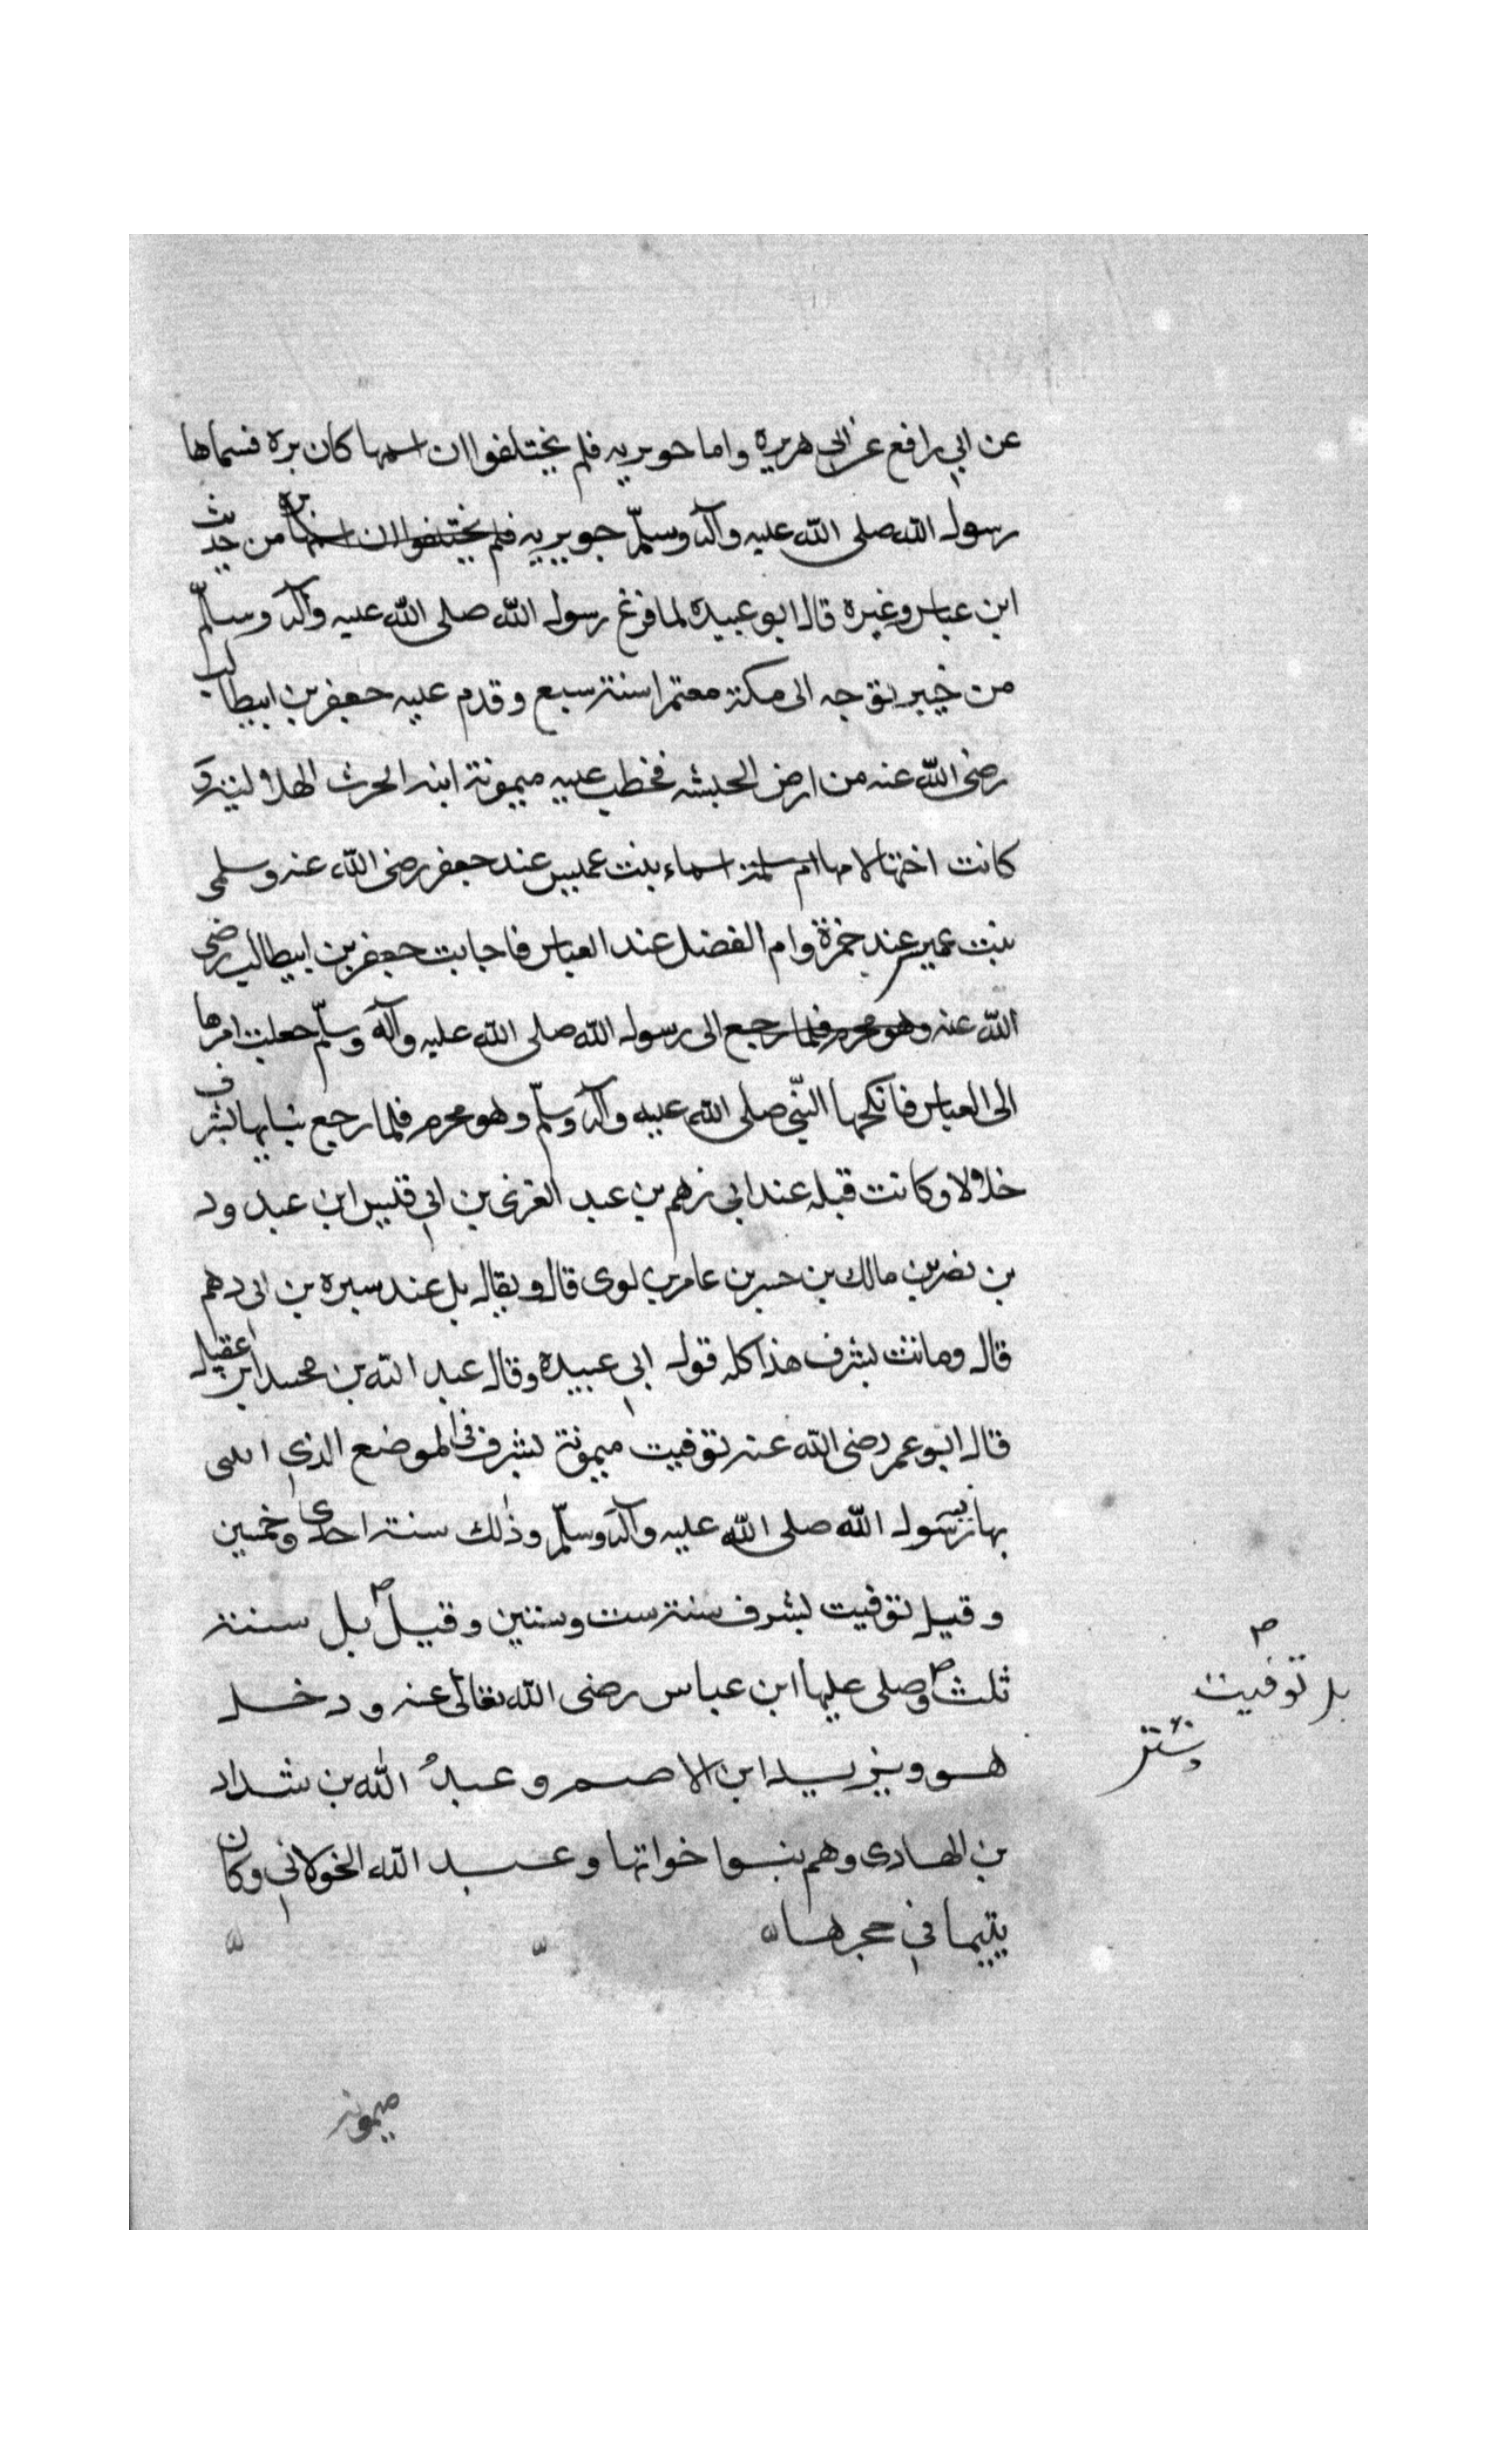 عن ابي رافع عن ابي هريره واما جويريه فلم يختلفوا ان اسمها كان بره فسماها
رسول الله صلى الله عليه وآله وسلّم جويريه فلم يختلفوا ان اسمها بره من حديث
ابن عباس وغيره قال ابو عبيده لما فرغ رسول الله صلى الله عليه وآله وسلّم
من خيبر توجه الى مكة معتمرا سنة سبع وقدم عليه جعفر بن ابيطالب
رضى الله عنه من ارض الحبشه فخطب عليه ميمونة ابنه الحرث الهلالية و
كانت اختها لامها ام سلمة اسماء بنت عميس عند جعفر رضى الله عنه وسلمى
بنت عميس عند حمزة وام الفضل عند العباس فاجابت جعفر بن ابيطالب رضى
الله عنه وهو محرم فلما رجع الى رسول الله صلى الله عليه وآله وسلّم جعلت امرها
الى العباس فانكحها النّبي صلى الله عليه وآله وسلّم وهو محرم فلما رجع بنابها بشرف
حلالا وكانت قبله عند ابى رهم بن عبد العزى بن ابي قيس ابن عبد ود
بن نصر بن مالك بن حسر بن عامر بن لوى قال ويقال بل عند سبره بن ابى رهم
قال وماتت بشرف هذا كله قول ابي عبيده وقال عبد الله بن محمد ابن عقيل
قال ابو عمر رضى الله عنه توفيت ميمونة بشرف فى الموضع الذي
بها رسول الله صلى الله عليه وآله وسلّم وذلك سنة احدى وخمسين
وقيل توفيت بشرف سنة ست وستين وقيل بل سنة
ثلث وصلى عليها ابن عباس رضى الله تعالى عنه ودخل
هو ويزيد ابن الاصم وعبد الله بن شداد
بن الهادى وهم بنوا خواتها وعبد الله الخولاني وكان
يتيما في حجرها
بل توفيت
ميمونة